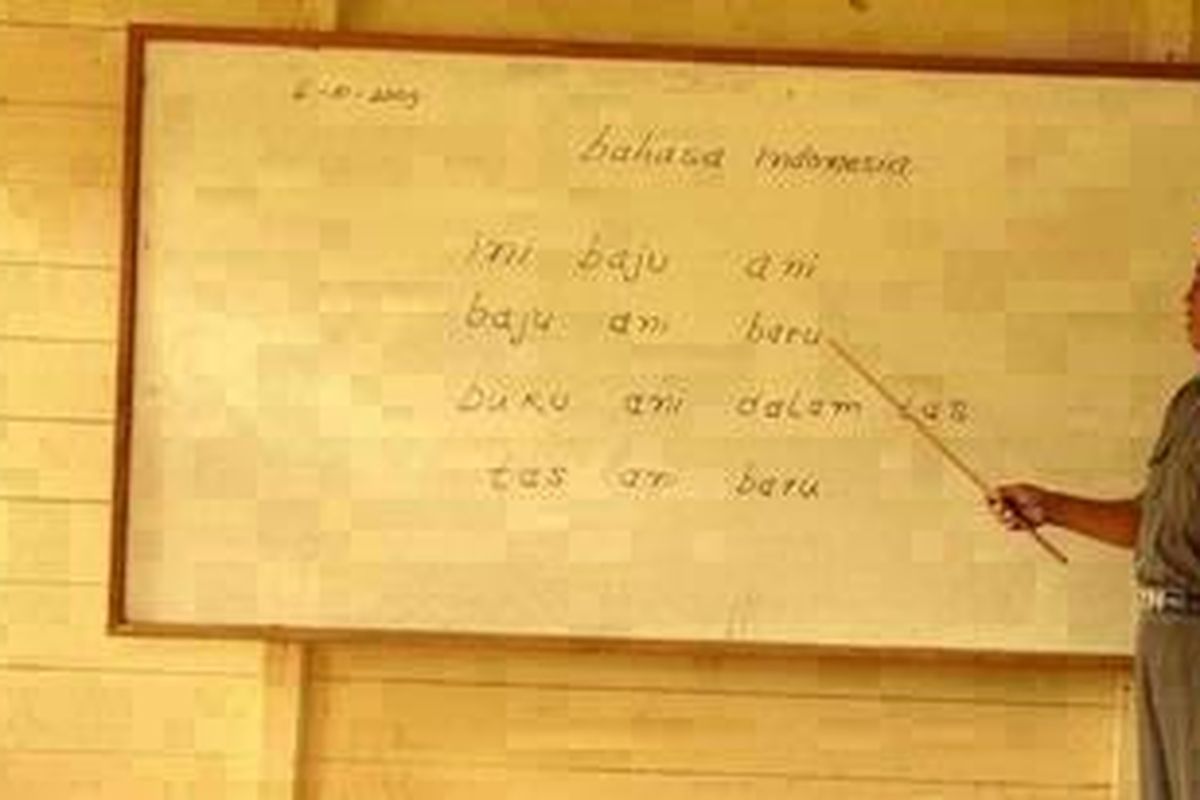 bahasa indonesia
ini baju ani
baju ani baru
buku ani dalam tas
tas ani baru